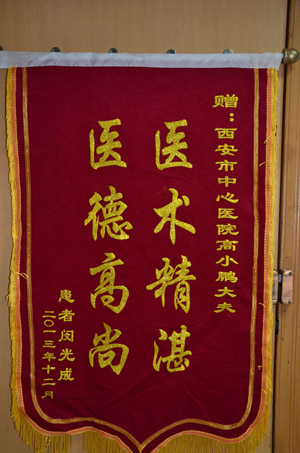 赠：西安市中心医院高小鹏大夫
医术精湛
医德高尚
患者闵光成
二〇一三年十二月